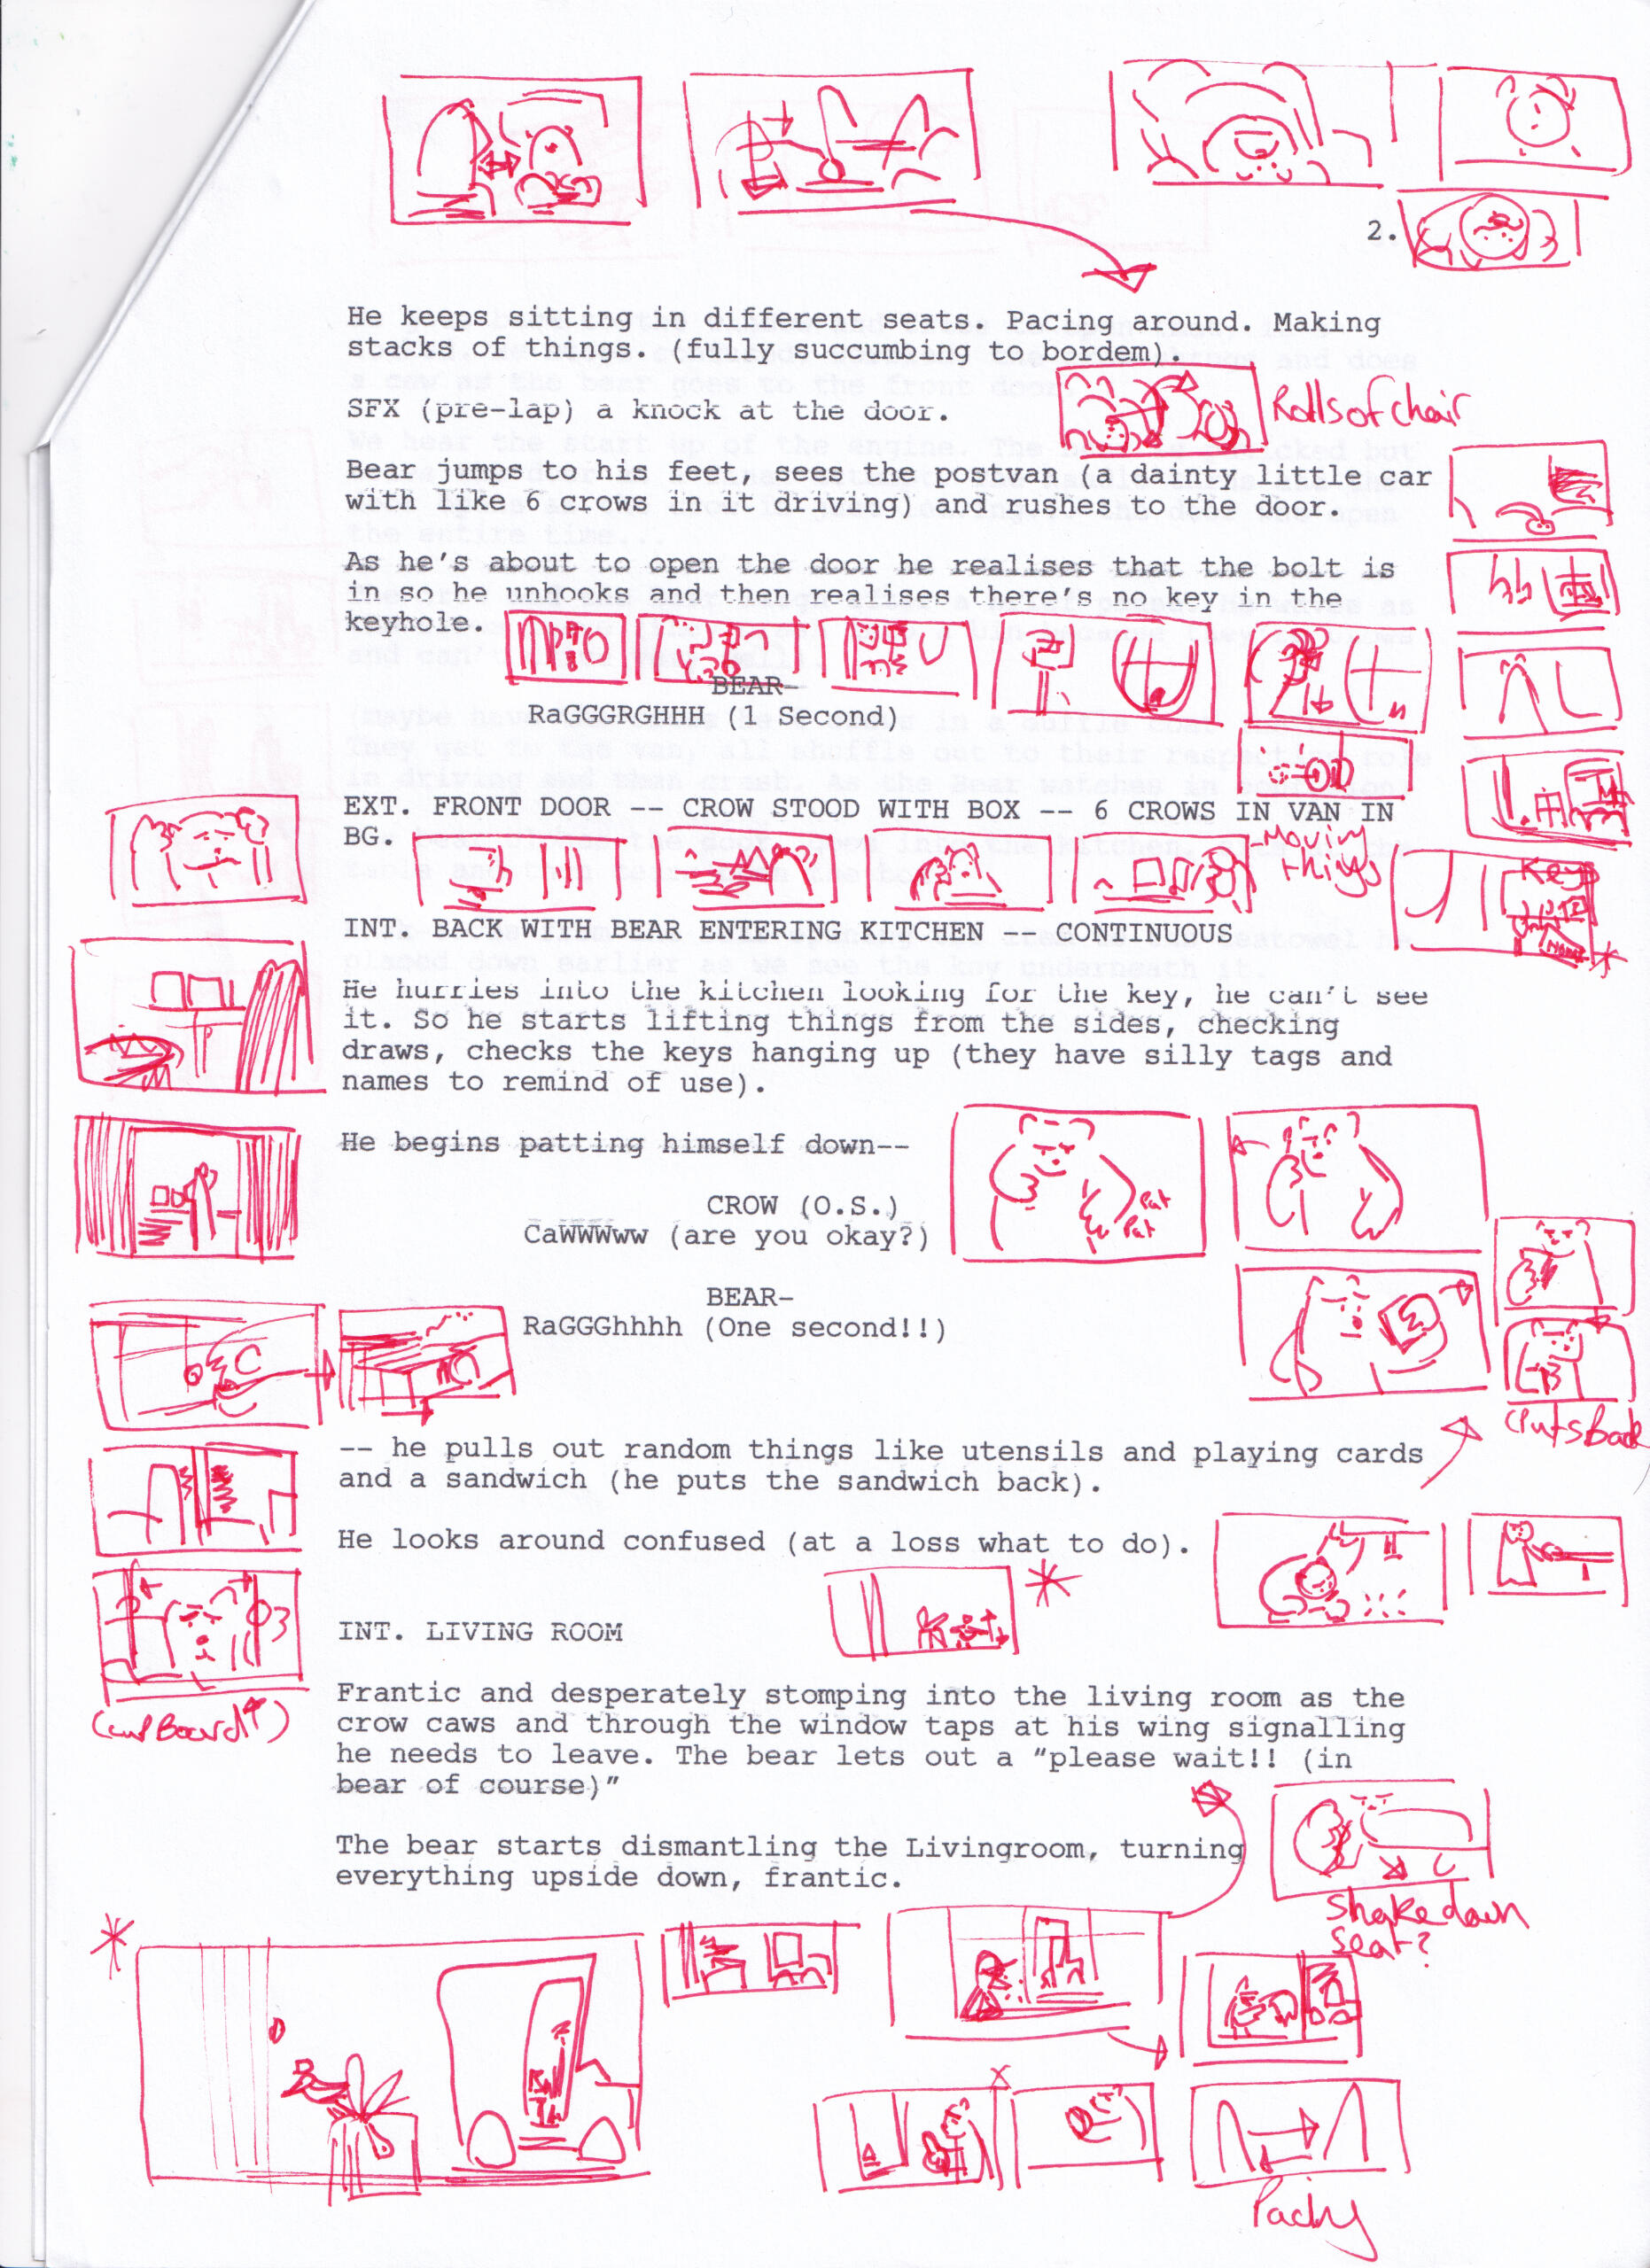 2.
He keeps sitting in different seats. Pacing around. Making
stacks of things. (fully succumbing to bordem).
SFX (pre-lap) a knock at the door.
Rolls of chair
Bear jumps to his feet, sees the postvan (a dainty little car
with like 6 crows in it driving) and rushes to the door.
As he's about to open the door he realises that the bolt is
in so he unhooks and then realises there's no key in the
keyhole.
BEAR-
RaGGGRGHHH (1 Second)
EXT. FRONT DOOR -- CROW STOOD WITH BOX -- 6 CROWS IN VAN IN
BG.
Moving
things
Keys
INT. BACK WITH BEAR ENTERING KITCHEN -- CONTINUOUS
He hurries into the kitchen looking for the key, he can't see
it. So he starts lifting things from the sides, checking
draws, checks the keys hanging up (they have silly tags and
names to remind of use).
He begins patting himself down--
Pat
Pat
CROW (O.S.)
CaWWWww (are you okay?)
BEAR-
RaGGGhhhh (One second!!)
Puts Back
-- he pulls out random things like utensils and playing cards
and a sandwich (he puts the sandwich back).
He looks around confused (at a loss what to do).
INT. LIVING ROOM
Frantic and desperately stomping into the living room as the
crow caws and through the window taps at his wing signalling
he needs to leave. The bear lets out a "please wait!! (in
bear of course)"
The bear starts dismantling the Livingroom, turning
everything upside down, frantic.
Shake down
Seat?